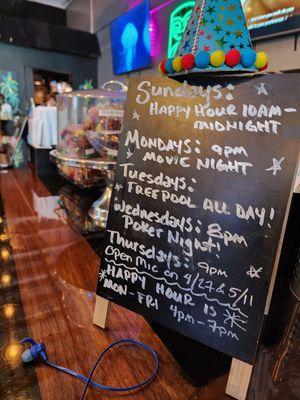 Sundays:
Happy Hour 10am-
midnight
Mondays: 9pm
Movie Night
Tuesdays:
Free Pool All Day!
Wednesdays: 8pm
Poker Night!
Thursdays: 9pm
Open Mic on 4/27 & 5/11
Happy Hour is
Mon-Fri 4pm-7pm